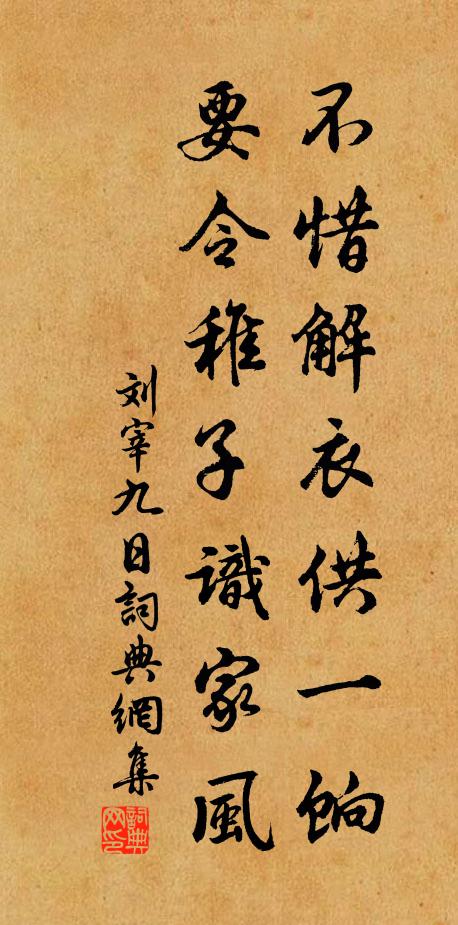 不惜解衣供一餉
要令稚子識家風
刘宰九日詞典網集
詞典网印